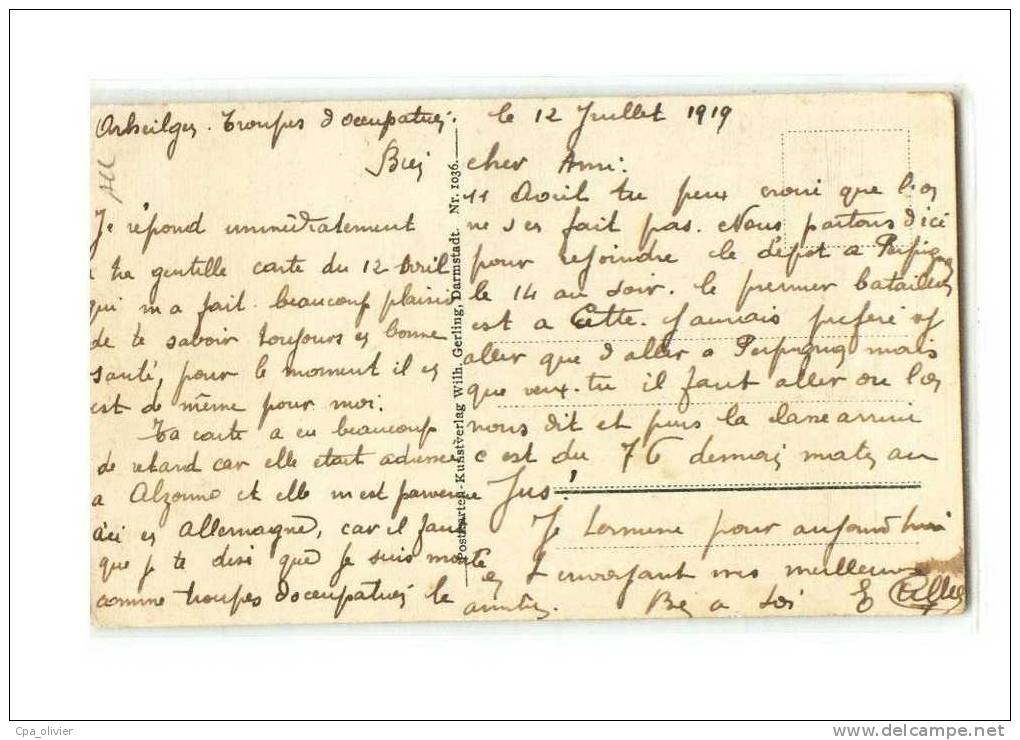 Troupes d'occupation. le 12 Juillet 1919
cher Ami.
Je répond immédiatement
a ta gentille carte du 12 Avril
qui m'a fait beaucoup plaisir
de te savoir toujours en bonne
santé, pour le moment il en
est de même pour moi.
Ta carte a eu beaucoup
de retard car elle était adressée
a Alzonne et elle m'est parvenue
ici en Allemagne, car il faut
que je te dise que je suis monté
comme troupes d'occupation le
11 Avril tu peux croire que l'on
ne s'en fait pas. Nous partons d'ici
pour rejoindre le dépot a Perpignan
le 14 au soir. le premier bataillon
est a Cette. J'aurais préféré y
aller que d'aller a Perpignan mais
que veux-tu il faut aller ou l'on
nous dit et puis la classe arrive
c'est du 76 demain matin au
Jus!
Je termine pour aujourd'hui
en t'envoyant mes meilleures
amitiés. Bien a toi E
Postkarten-Kunstverlag Wilh. Gerling, Darmstadt. Nr. 1036.
Cpa_olivier
www.delcampe.net